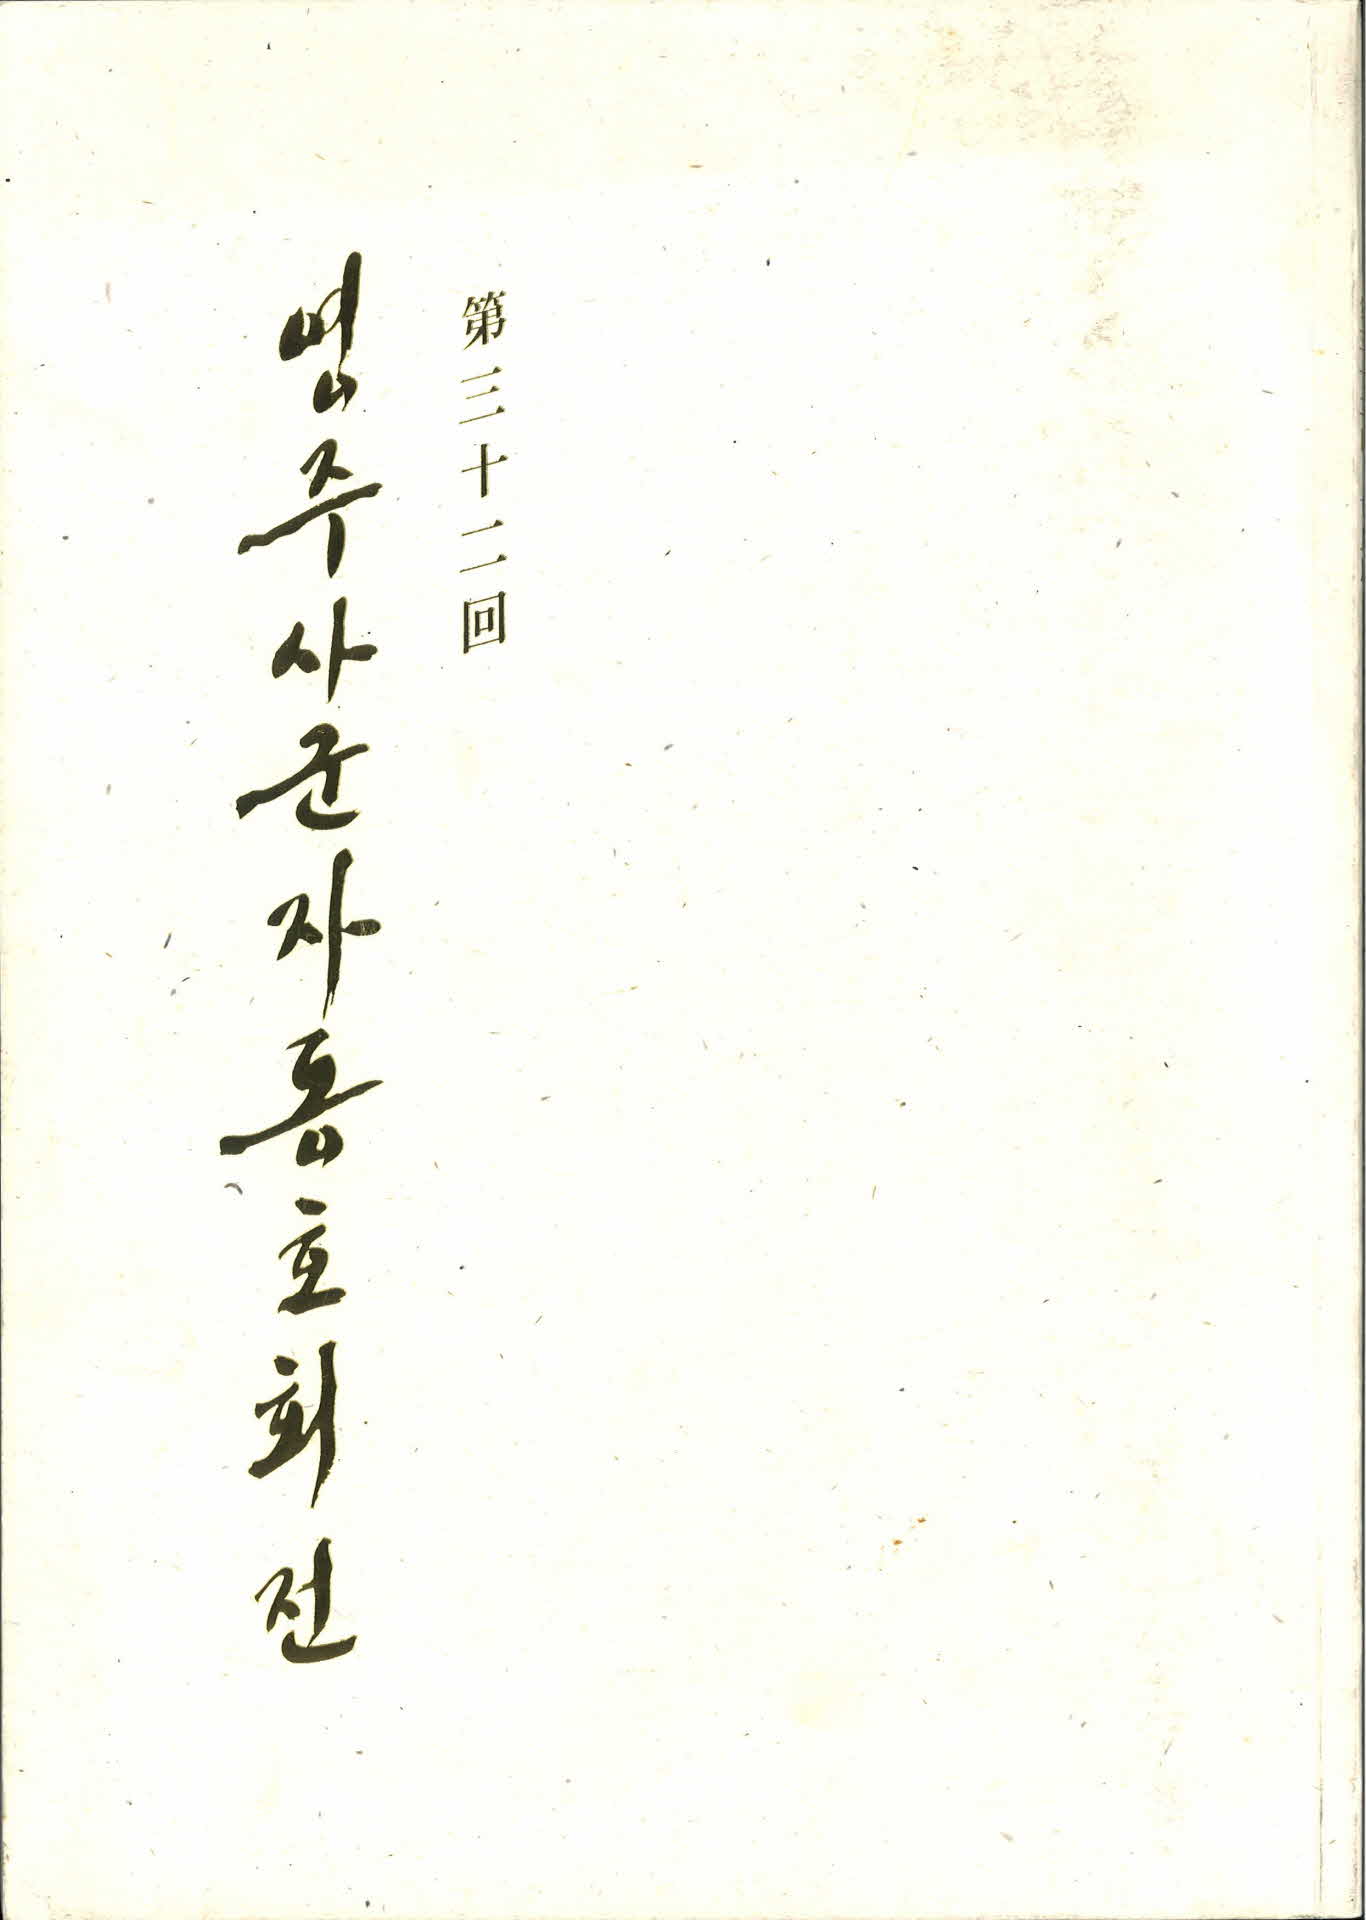 第三十二回
명주사군자동호회전